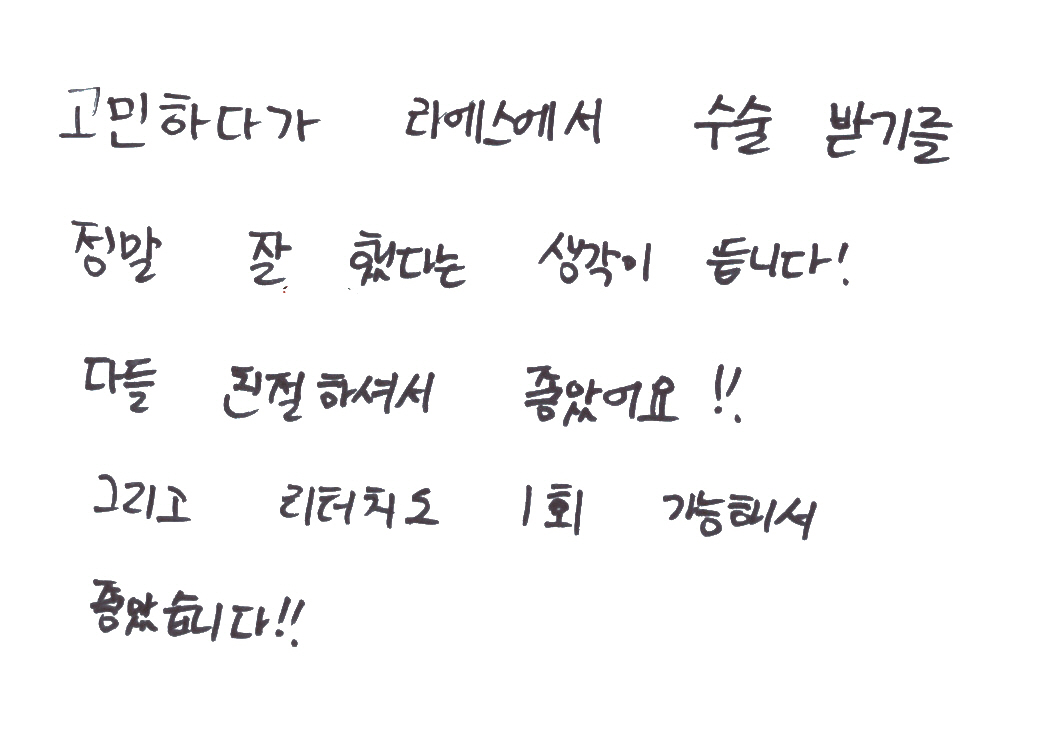 고민하다가 라에스에서 수술 받기를
정말 잘 했다는 생각이 듭니다!
다들 친절하셔서 좋았어요!!
그리고 리터치도 1회 가능해서
좋았습니다!!